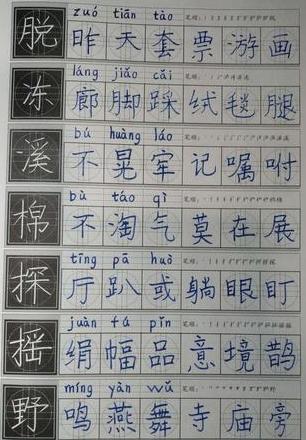 zuó tiān tào 笔顺：
脱 昨 天 套 票 游 画
láng jiǎo cǎi 笔顺：
冻 廊 脚 踩 绒 毯 腿
bú huàng láo 笔顺：
溪 不 晃 牢 记 嘱 咐
bù táo qì 笔顺：
棉 不 淘 气 莫 在 展
tīng pā huò 笔顺：
探 厅 趴 或 躺 眼 盯
juàn fú pǐn 笔顺：
摇 绢 幅 品 意 境 鹊
míng yàn wǔ 笔顺：
野 鸣 燕 舞 寺 庙 旁